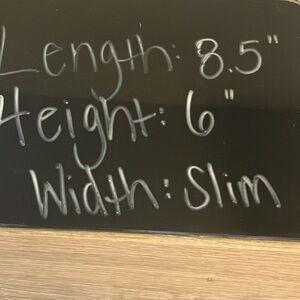 Length: 8.5"
Height: 6"
Width: Slim